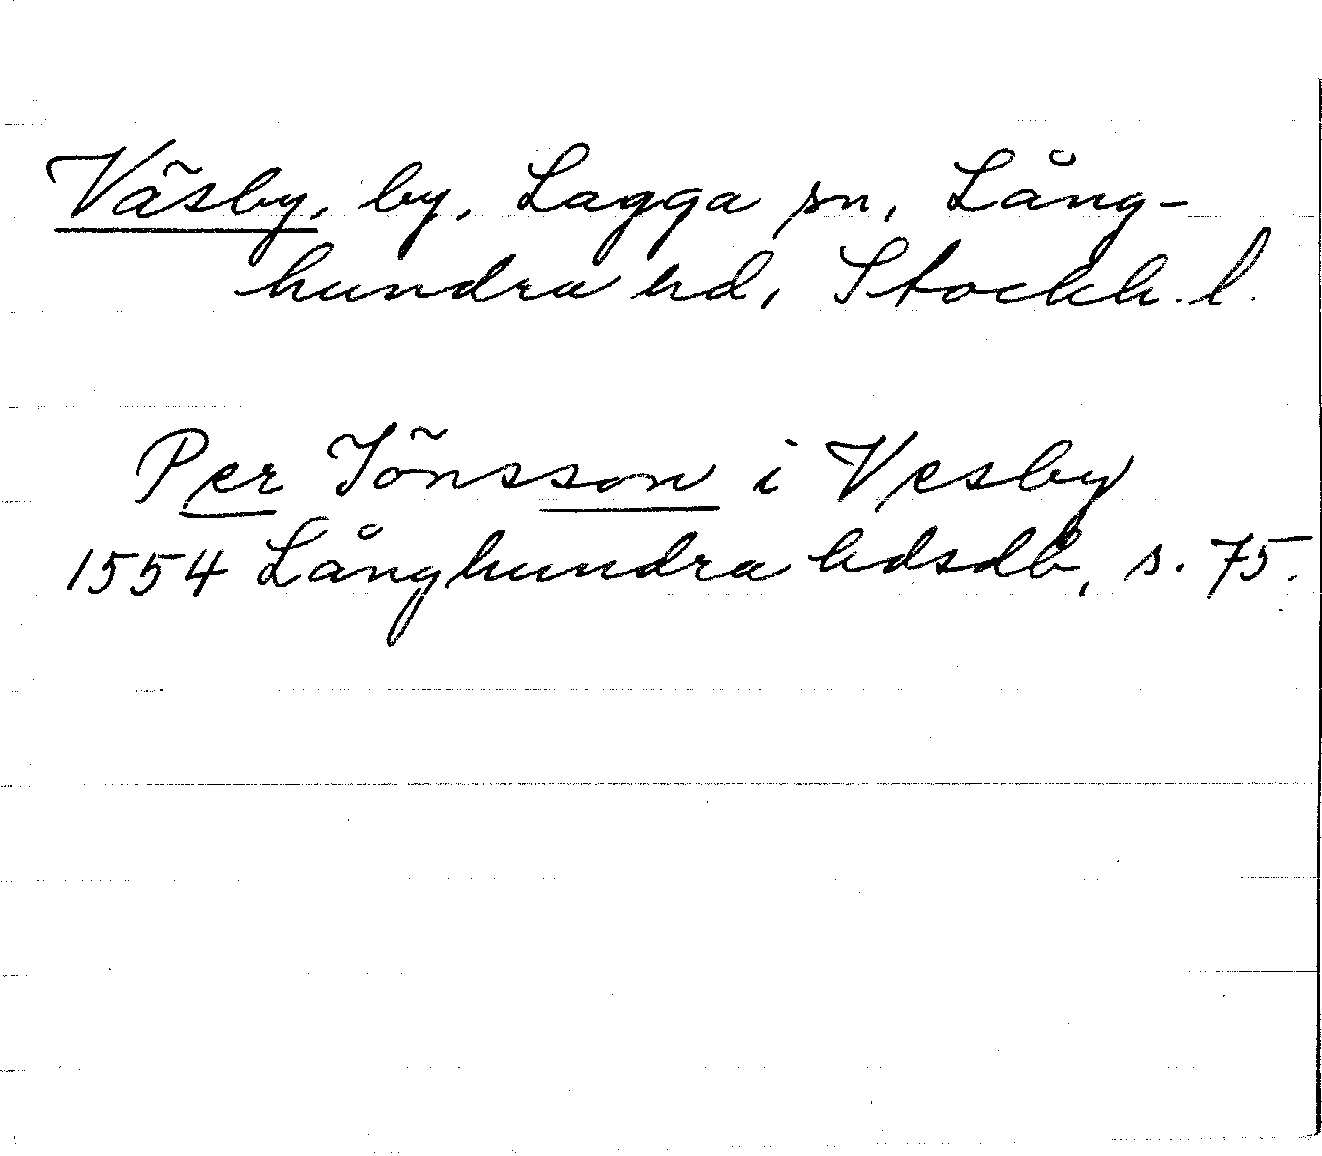 Väsby, by, Lagga sn, Lång-
hundra hd, Stockh. l.
Per Jönsson i Vesby
1554 Långhundra hdsdb, s. 75.